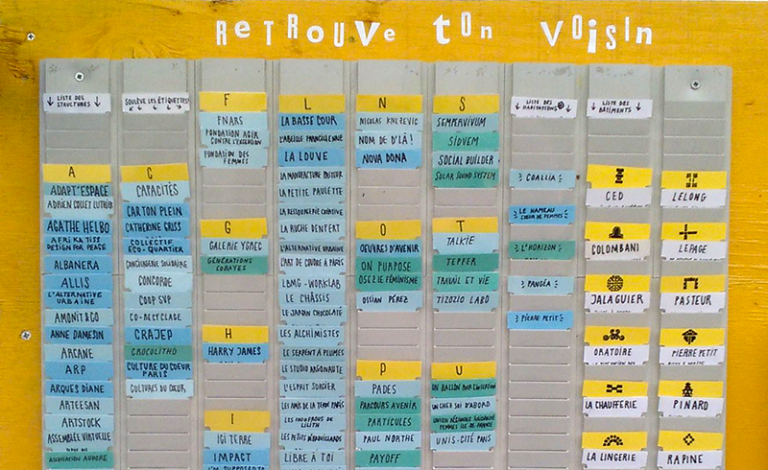 RETROUVE TON VOISIN
LISTE DES
STRUCTURES
A
ADAPT'ESPACE
AGATHE HELBO
AFRIKATISS
DESIGN FOR PEACE
ALBANERA
ALLIS
L'ALTERNATIVE
URBAINE
AMONIT&CO
ANNE DAMESIN
ARCANE
ARP
ARQUES DIANE
ARTEESAN
ARTSTOCK
ASSEMBLÉE VIRTUELLE
ASSOCIATION AURORE
SOULÈVE LES ÉTIQUETTES
C
CAPACITÉS
CARTON PLEIN
CATHERINE GRISS
COLLECTIF
ECO-QUARTIER
CONCIERGERIE SOLIDAIRE
CONCORDE
COOP SVP
CO-RECYCLAGE
CRAJEP
CROCOLITHO
CULTURE DU COEUR
PARIS
CULTURES DU COEUR
F
FNARS
FONDATION AGIR
CONTRE L'EXCLUSION
FONDATION DES
FEMMES
G
GALERIE YGREC
GÉNÉRATIONS
COBAYES
H
HARRY JAMES
I
ICI TERRE
IMPACT
L
LA BASSE COUR
L'ABEILLE FRANCILIENNE
LA LOUVE
LA PETITE PAULETTE
LA RESSOURCERIE CREATIVE
LA RUCHE DENFERT
L'ALTERNATIVE URBAINE
L'ART DE COUDRE A PARIS
LBMG-WORKLAB
LE CHÂSSIS
LE JARDIN CHOCOLATÉ
LES ALCHIMISTES
LE SERPENT À PLUMES
LE STUDIO ARGONAUTE
L'ESPRIT SORCIER
LES AMIS DE LA TERRE PARIS
LILITH
LIBRE À TOI
N
NOM DE D'LÀ!
NOVA DONA
O
OEUVRES D'AVENIR
ON PURPOSE
OSEZ LE FÉMINISME
OSSIAN PÉREZ
P
PADES
PARCOURS AVENIR
PARTICULES
PAUL NORTHE
PAYOFF
S
SEMPERVIVUM
SIDVEM
SOCIAL BUILDER
SOLAR SOUND SYSTEM
T
TALKIE
TEPFER
TRAVAIL ET VIE
TIZOZIO LABO
U
UN BALLON POUR L'INSERTION
UN CHEZ SOI D'ABORD
UNIS-CITÉ PARIS
LISTE DES
HABITATIONS
COALLIA
LE HAMEAU
COEUR DE FEMMES
L'HORIZON
PANGÉA
PIERRE PETIT
LISTE DES
BÂTIMENTS
CED
COLOMBANI
JALAGUIER
ORATOIRE
LA CHAUFFERIE
LA LINGERIE
LELONG
LEPAGE
PASTEUR
PIERRE PETIT
PINARD
RAPINE